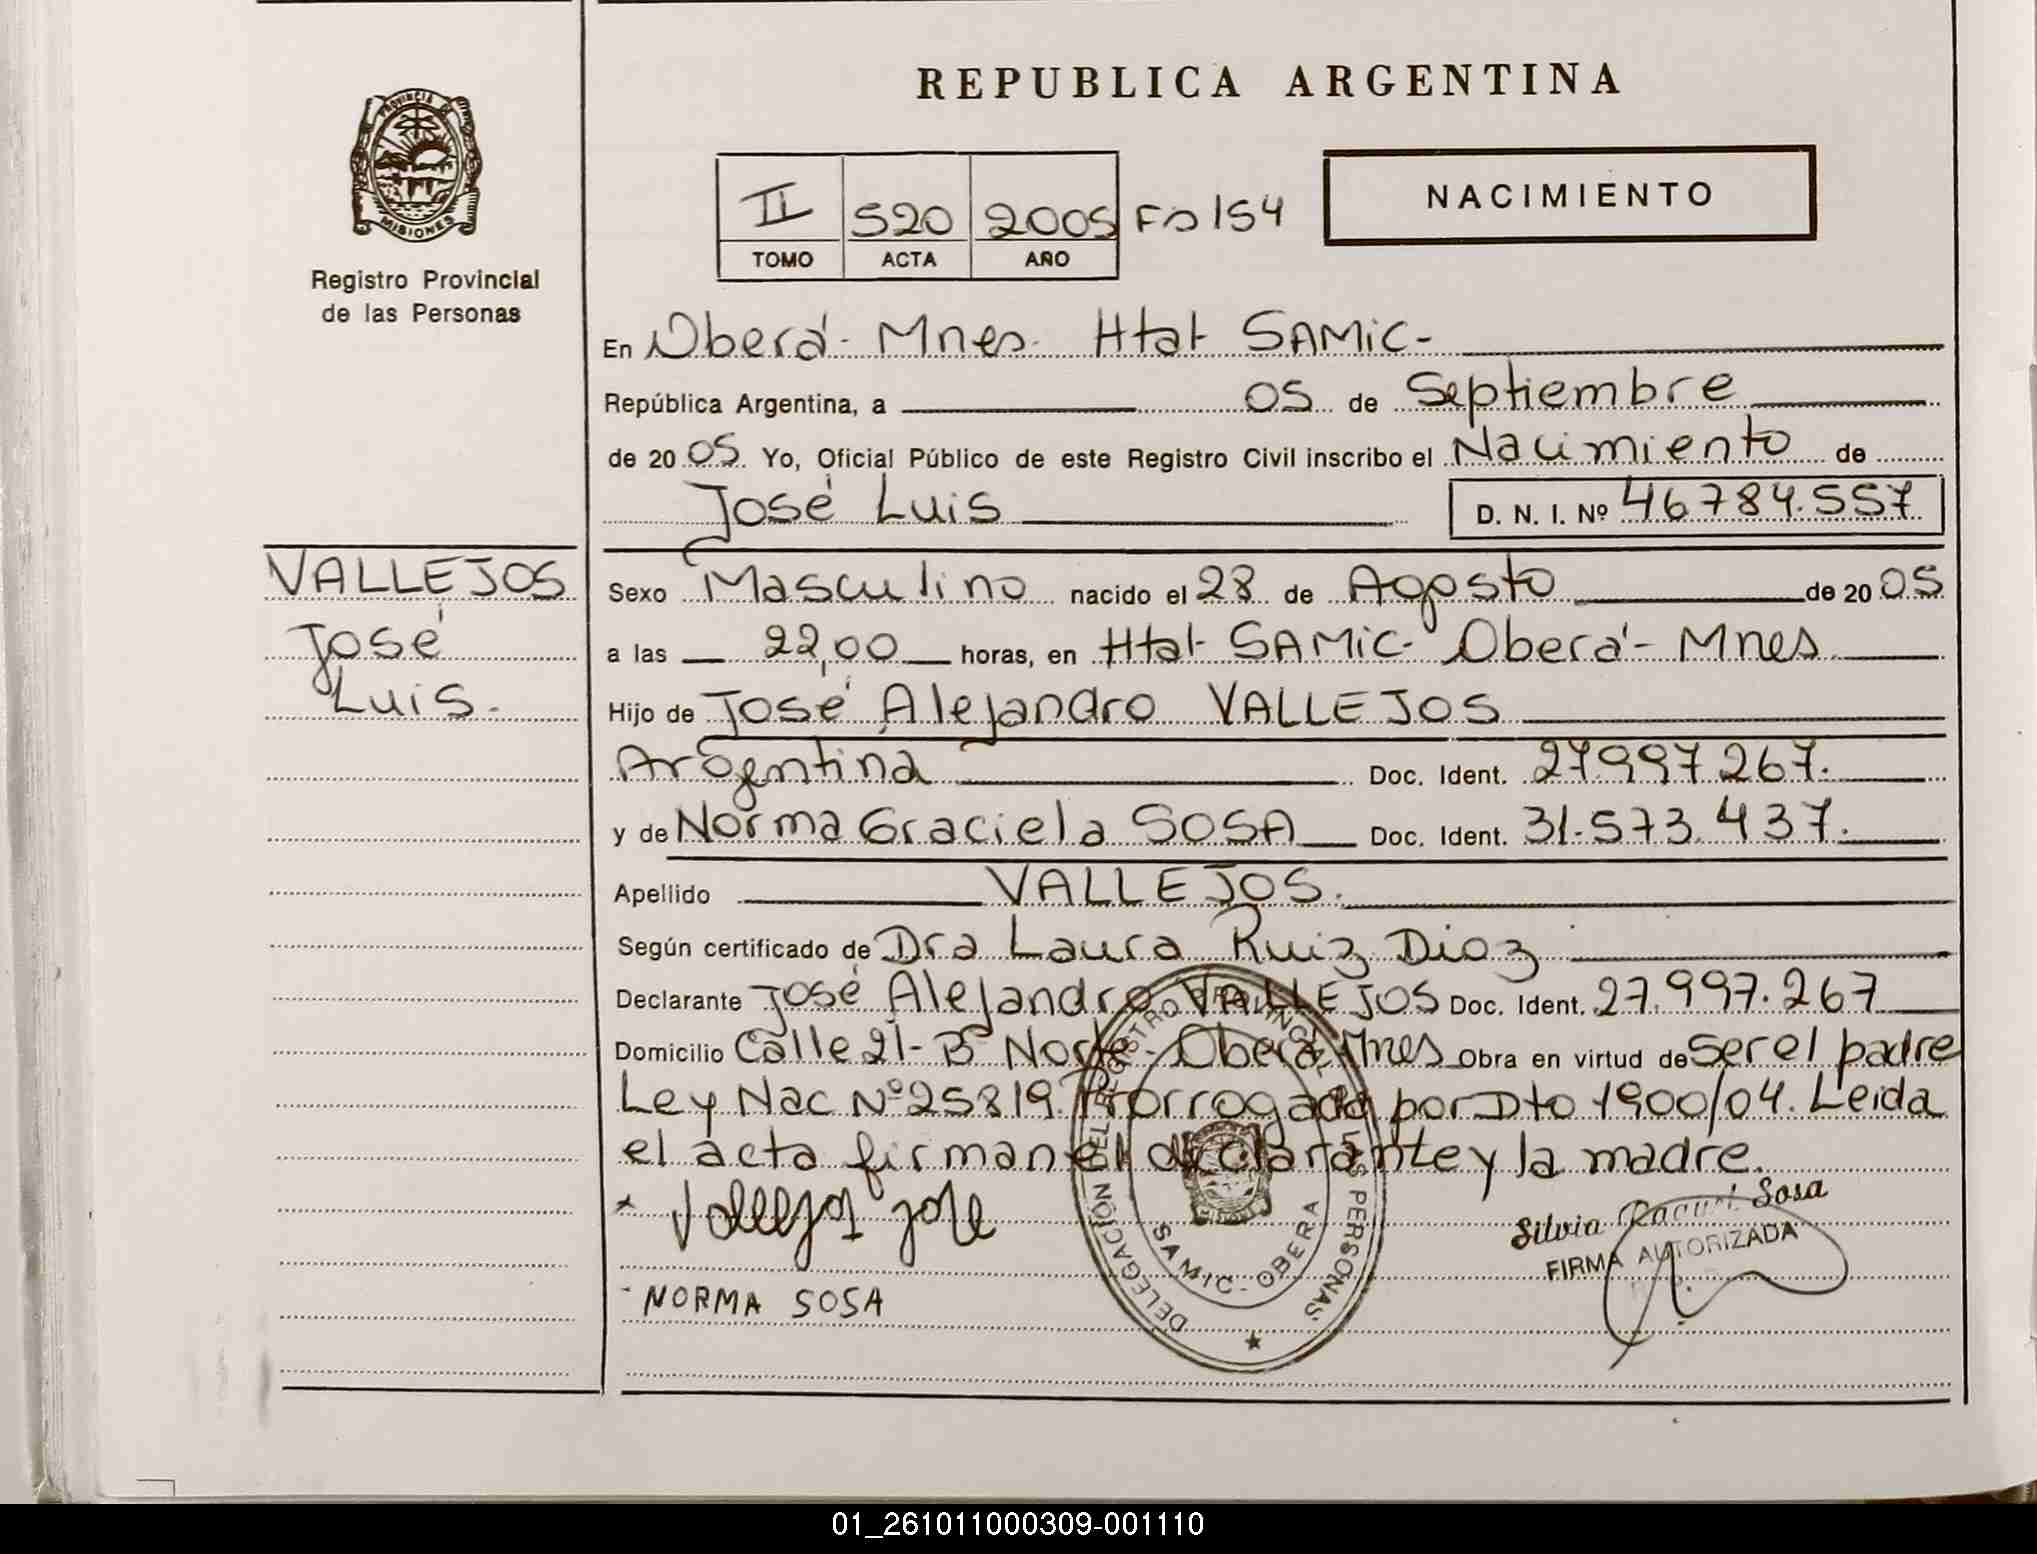 REPUBLICA ARGENTINA
PROVINCIA DE MISIONES
Registro Provincial
de las Personas
II 520 2005 Fo 154
TOMO ACTA AÑO
NACIMIENTO
En Oberá - Mnes. Htal SAMIC -
República Argentina, a 05 de Septiembre
de 2005. Yo, Oficial Público de este Registro Civil inscribo el Nacimiento de
José Luis D. N. I. Nº 46784.557
VALLEJOS
José
Luis.
Sexo Masculino nacido el 28 de Agosto de 2005
a las 22,00 horas, en Htal SAMIC - Oberá - Mnes.
Hijo de José Alejandro VALLEJOS
Argentina Doc. Ident. 27.997.267.
y de Norma Graciela SOSA Doc. Ident. 31.573.437.
Apellido VALLEJOS.
Según certificado de Dra Laura Ruiz Diaz
Declarante José Alejandro VALLEJOS Doc. Ident. 27.997.267
Domicilio Calle 21 - Bº Norte - Oberá Mnes Obra en virtud de Ser el padre
Ley Nac Nº 25819 Prorrogada por Dto 1900/04. Leida
el acta firman el declarante y la madre.
* Vallejos Jose
- NORMA SOSA
DELEGACIÓN DEL REGISTRO PROVINCIAL DE LAS PERSONAS
SAMIC - OBERA
Silvia Raquel Sosa
FIRMA AUTORIZADA
01_261011000309-001110